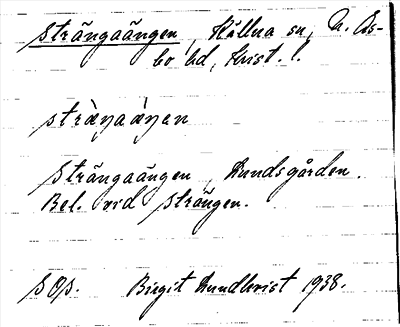 Strängaängen, Källna sn, N. Ås-
bo hd, Krist. l.
stràŋaàŋen
Strängaängen, Lundsgården.
Bel. vid Strängen.
S Ojs. Birgit Lundkvist 1938.